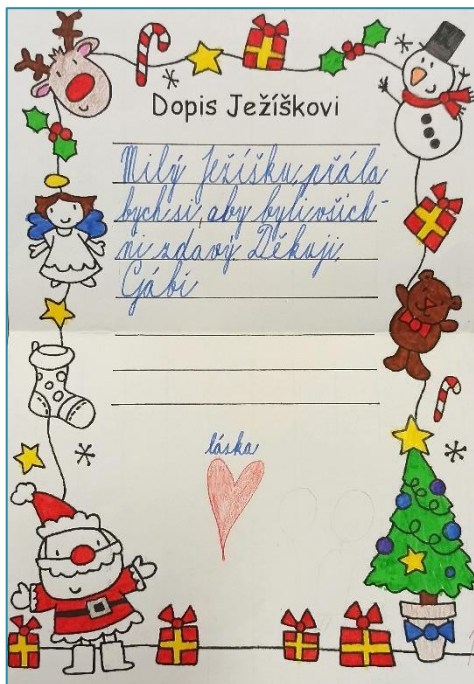 Dopis Ježíškovi
Milý Ježíšku, přála
bych si, aby byli všich-
ni zdavý Děkuji
Gábi
láska